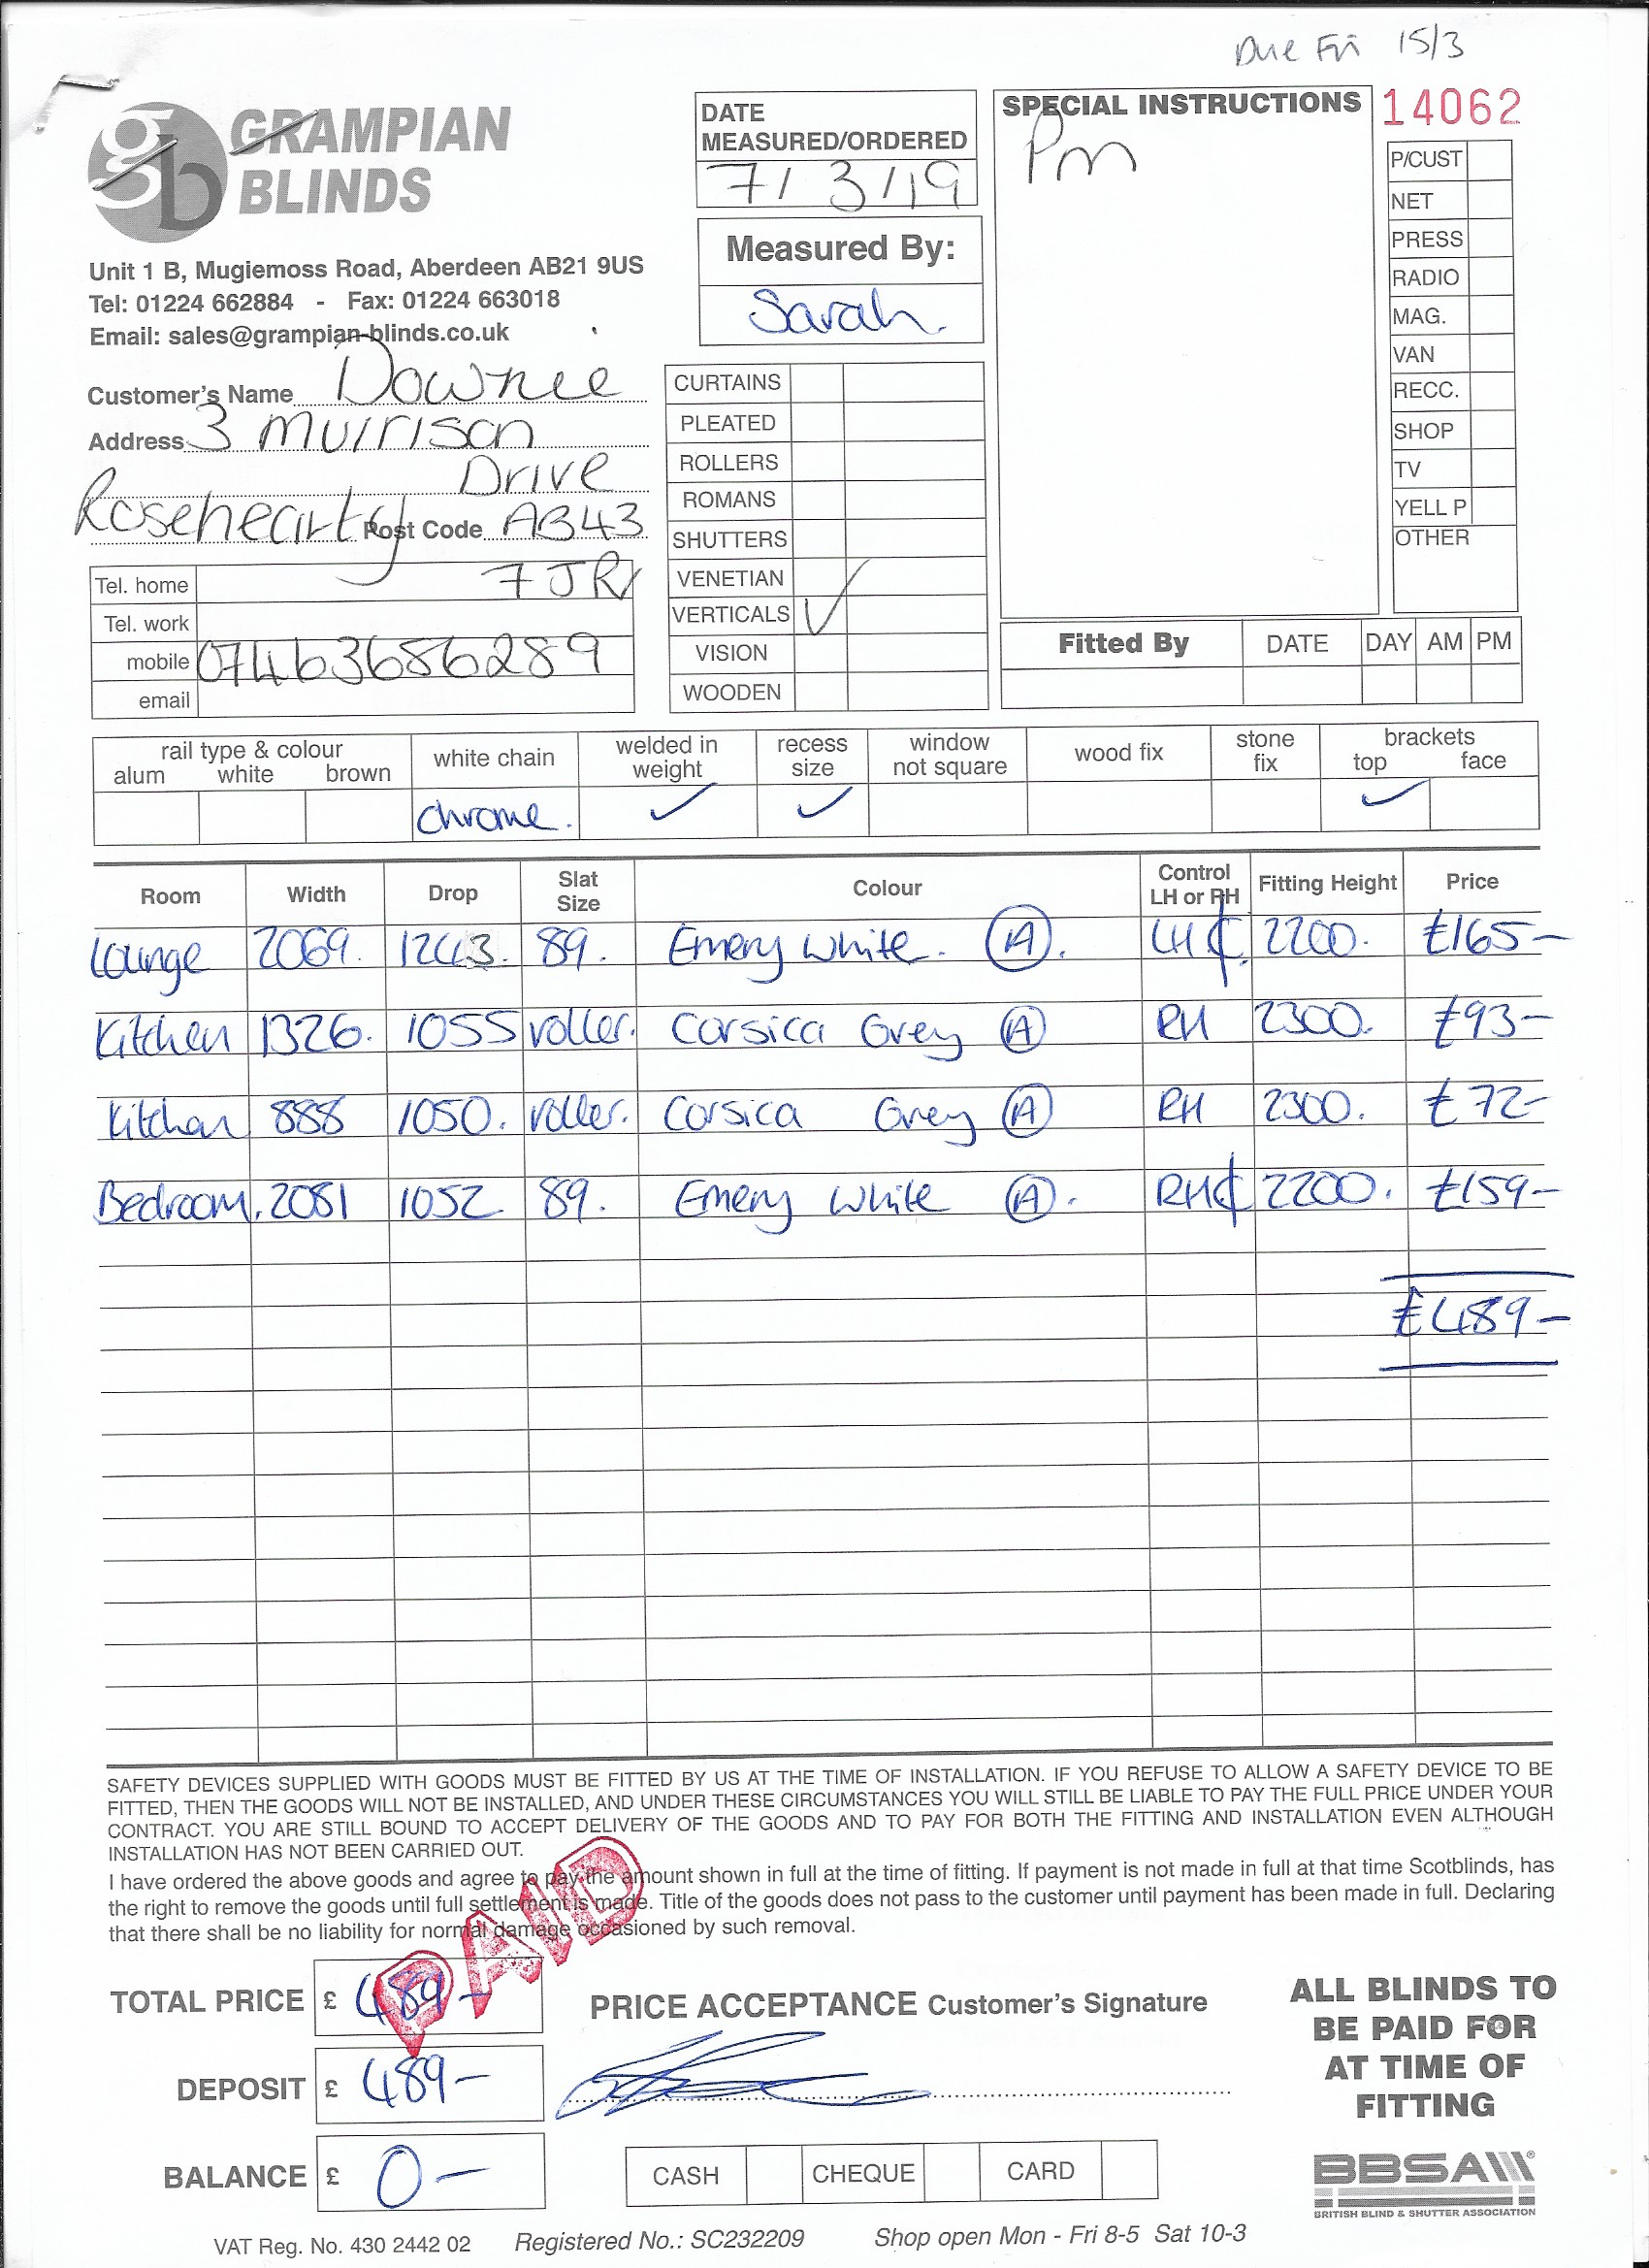 Due Fri 15/3
GRAMPIAN
BLINDS
Unit 1 B, Mugiemoss Road, Aberdeen AB21 9US
Tel: 01224 662884 - Fax: 01224 663018
Email: sales@grampian-blinds.co.uk
DATE
MEASURED/ORDERED
7/3/19
Measured By:
Sarah.
SPECIAL INSTRUCTIONS
Pm
14062
P/CUST
NET
PRESS
RADIO
MAG.
VAN
RECC.
SHOP
TV
YELL P
OTHER
Customer's Name Downee
Address 3 Muirison
Drive
Rosehearty Post Code AB43
7JR
Tel. home
Tel. work
mobile 07463686289
email
CURTAINS
PLEATED
ROLLERS
ROMANS
SHUTTERS
VENETIAN
VERTICALS ✓
VISION
WOODEN
Fitted By DATE DAY AM PM
rail type & colour
alum white brown
white chain
welded in weight
recess size
window not square
wood fix
stone fix
brackets
top face
chrome. ✓ ✓ ✓
Room Width Drop Slat Size Colour Control LH or RH Fitting Height Price
Lounge 2069. 1243. 89. Emery White. A. LH ₵. 2200. £165-
Kitchen 1326. 1055 roller. Corsica Grey A RH 2300. £93-
Kitchen 888 1050. roller. Corsica Grey A RH 2300. £72-
Bedroom. 2081 1052 89. Emery White A. RH ₵ 2200. £159-
£489-
SAFETY DEVICES SUPPLIED WITH GOODS MUST BE FITTED BY US AT THE TIME OF INSTALLATION. IF YOU REFUSE TO ALLOW A SAFETY DEVICE TO BE
FITTED, THEN THE GOODS WILL NOT BE INSTALLED, AND UNDER THESE CIRCUMSTANCES YOU WILL STILL BE LIABLE TO PAY THE FULL PRICE UNDER YOUR
CONTRACT. YOU ARE STILL BOUND TO ACCEPT DELIVERY OF THE GOODS AND TO PAY FOR BOTH THE FITTING AND INSTALLATION EVEN ALTHOUGH
INSTALLATION HAS NOT BEEN CARRIED OUT.
I have ordered the above goods and agree to pay the amount shown in full at the time of fitting. If payment is not made in full at that time Scotblinds, has
the right to remove the goods until full settlement is made. Title of the goods does not pass to the customer until payment has been made in full. Declaring
that there shall be no liability for normal damage occasioned by such removal.
PAID
TOTAL PRICE £ 489-
DEPOSIT £ 489-
BALANCE £ 0-
PRICE ACCEPTANCE Customer's Signature
CASH CHEQUE CARD
ALL BLINDS TO
BE PAID FOR
AT TIME OF
FITTING
BBSA
BRITISH BLIND & SHUTTER ASSOCIATION
VAT Reg. No. 430 2442 02 Registered No.: SC232209 Shop open Mon - Fri 8-5 Sat 10-3